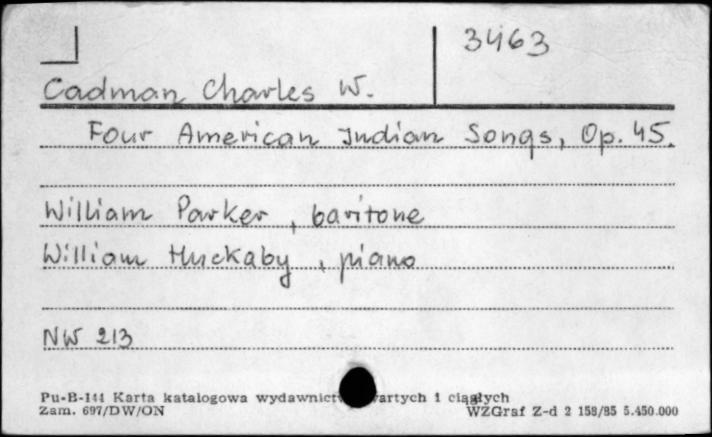 3463
Cadman Charles W.
Four American Indian Songs, Op. 45.
William Parker, baritone
William Huckaby, piano
NW 213
Pu-B-144 Karta katalogowa i ciągłych
Zam. 697/DW/ON WZGraf Z-d 2 158/85 5.450.000